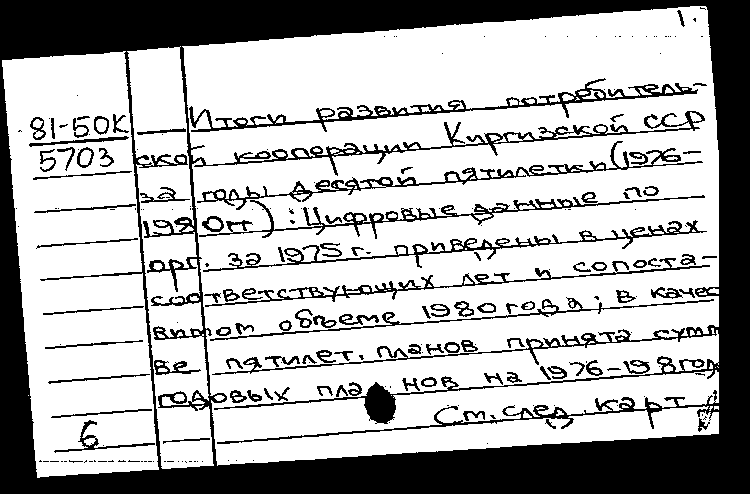 1.
81-50К
5703
Итоги развития потребитель-
ской кооперации Киргизской ССР
за годы десятой пятилетки (1976-
1980гг) : Цифровые данные по
орг. за 1975 г. приведены в ценах
соответствующих лет и сопоста-
вимом объеме 1980 года; в качес
ве пятилет. планов принята сумм
годовых планов на 1976-198 год
См. след. карт
6